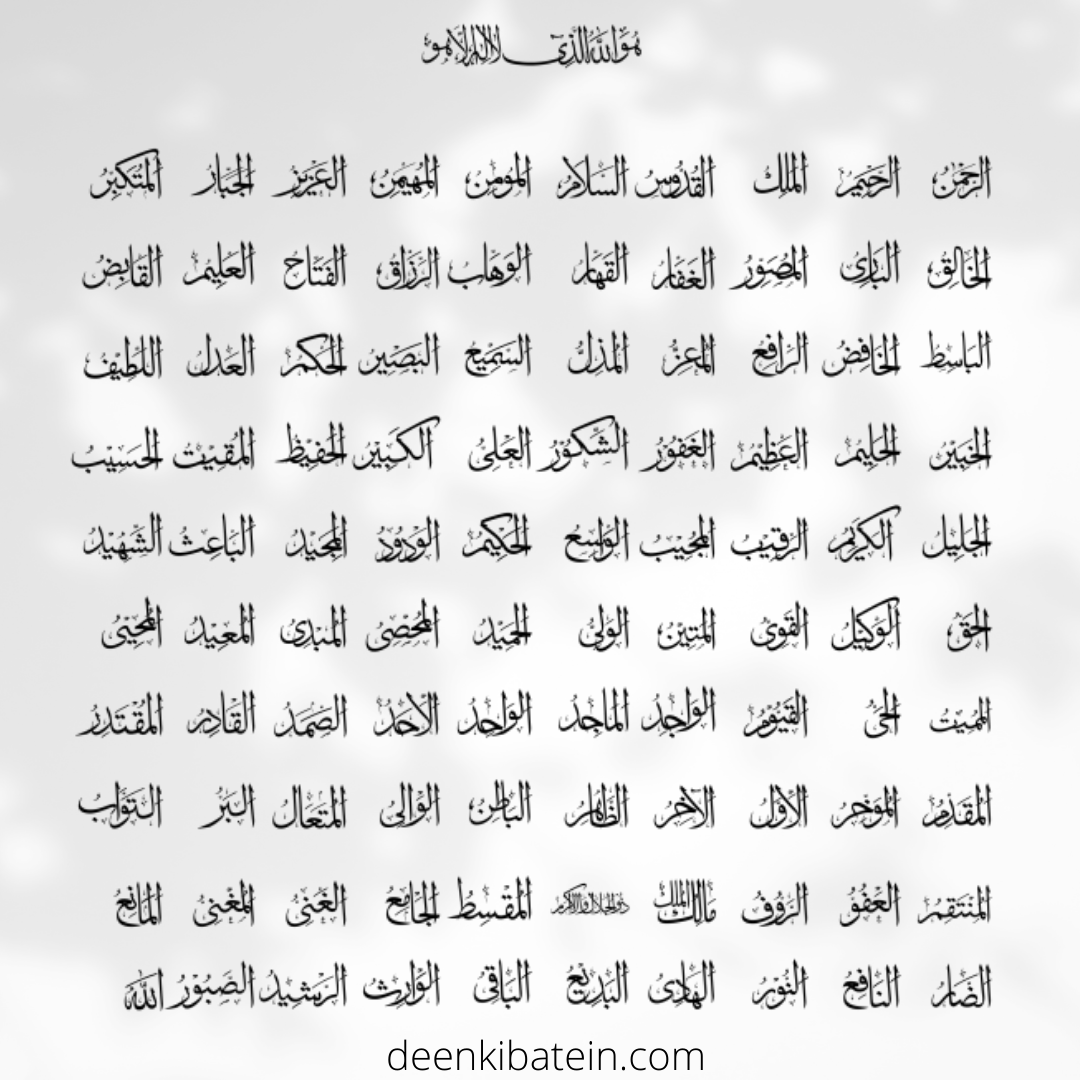 هُوَاللهُ الَّذِی لَا اِلٰهَ اِلَّا هُوَ
الرَّحْمٰنُ الرَّحِيْمُ الْمَلِكُ الْقُدُّوْسُ السَّلَامُ الْمُؤْمِنُ الْمُهَيْمِنُ الْعَزِيْزُ الْجَبَّارُ الْمُتَكَبِّرُ
الْخَالِقُ الْبَارِیُ الْمُصَوِّرُ الْغَفَّارُ الْقَهَّارُ الْوَهَّابُ الرَّزَّاقُ الْفَتَّاحُ الْعَلِيْمُ الْقَابِضُ
الْبَاسِطُ الْخَافِضُ الرَّافِعُ الْمُعِزُّ الْمُذِلُّ السَّمِيْعُ الْبَصِيْرُ الْحَكَمُ الْعَدْلُ اللَّطِيْفُ
الْخَبِيْرُ الْحَلِيْمُ الْعَظِيْمُ الْغَفُوْرُ الشَّكُوْرُ الْعَلِیُّ الْكَبِيْرُ الْحَفِيْظُ الْمُقِيْتُ الْحَسِيْبُ
الْجَلِيْلُ الْكَرِيْمُ الرَّقِيْبُ الْمُجِيْبُ الْوَاسِعُ الْحَكِيْمُ الْوَدُوْدُ الْمَجِيْدُ الْبَاعِثُ الشَّهِيْدُ
الْحَقُّ الْوَكِيْلُ الْقَوِیُّ الْمَتِيْنُ الْوَلِیُّ الْحَمِيْدُ الْمُحْصِیُ الْمُبْدِیُ الْمُعِيْدُ الْمُحْيِیُ
الْمُمِيْتُ الْحَیُّ الْقَيُّوْمُ الْوَاجِدُ الْمَاجِدُ الْوَاحِدُ الْاَحَدُ الصَّمَدُ الْقَادِرُ الْمُقْتَدِرُ
الْمُقَدِّمُ الْمُؤَخِّرُ الْاَوَّلُ الْاٰخِرُ الظَّاهِرُ الْبَاطِنُ الْوَالِی الْمُتَعَالُ الْبَرُّ التَّوَّابُ
الْمُنْتَقِمُ الْعَفُوُّ الرَّؤُفُ مَالِكُ الْمُلْكِ ذُوالْجَلَالِ وَالْاِكْرَامِ الْمُقْسِطُ الْجَامِعُ الْغَنِیُّ الْمُغْنِیُ الْمَانِعُ
الضَّارُ النَّافِعُ النُّوْرُ الْهَادِی الْبَدِيْعُ الْبَاقِی الْوَارِثُ الرَّشِيْدُ الصَّبُوْرُ اللهُ
deenkibatein.com